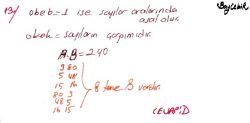 13) obeb=1 ise sayılar aralarında
asal olur.
okek = sayıların çarpımıdır.
A.B = 240
3 80
5 48
15 16
80 3
48 5
16 15
8 tane B vardır.
CEVAP: D